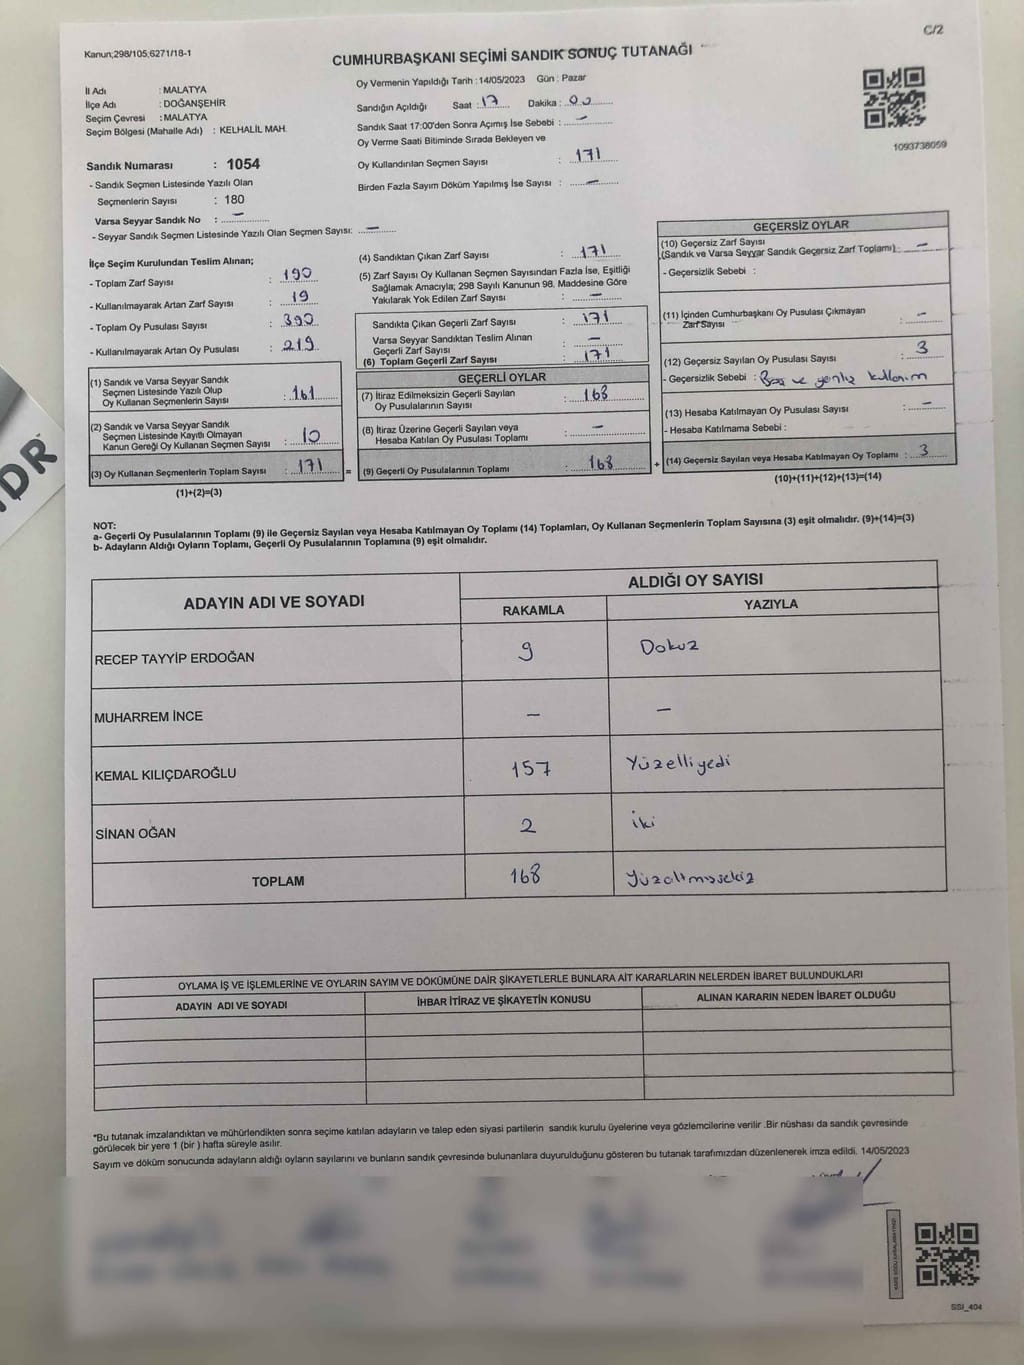 C/2
Kanun;298/105,6271/18-1
CUMHURBAŞKANI SEÇİMİ SANDIK SONUÇ TUTANAĞI
İl Adı : MALATYA
İlçe Adı : DOĞANŞEHİR
Seçim Çevresi : MALATYA
Seçim Bölgesi (Mahalle Adı) : KELHALİL MAH.
Sandık Numarası : 1054
- Sandık Seçmen Listesinde Yazılı Olan
Seçmenlerin Sayısı : 180
Varsa Seyyar Sandık No : –
- Seyyar Sandık Seçmen Listesinde Yazılı Olan Seçmen Sayısı: –
Oy Vermenin Yapıldığı Tarih : 14/05/2023 Gün : Pazar
Sandığın Açıldığı Saat : 17 Dakika : 00
Sandık Saat 17:00'den Sonra Açımış İse Sebebi : –
Oy Verme Saati Bitiminde Sırada Bekleyen ve
Oy Kullandırılan Seçmen Sayısı : 171
Birden Fazla Sayım Döküm Yapılmış İse Sayısı : –
1093738059
İlçe Seçim Kurulundan Teslim Alınan;
- Toplam Zarf Sayısı : 190
- Kullanılmayarak Artan Zarf Sayısı : 19
- Toplam Oy Pusulası Sayısı : 390
- Kullanılmayarak Artan Oy Pusulası : 219
(1) Sandık ve Varsa Seyyar Sandık
Seçmen Listesinde Yazılı Olup
Oy Kullanan Seçmenlerin Sayısı : 161
(2) Sandık ve Varsa Seyyar Sandık
Seçmen Listesinde Kayıtlı Olmayan
Kanun Gereği Oy Kullanan Seçmen Sayısı : 10
(3) Oy Kullanan Seçmenlerin Toplam Sayısı : 171 =
(1)+(2)=(3)
(4) Sandıktan Çıkan Zarf Sayısı : 171
(5) Zarf Sayısı Oy Kullanan Seçmen Sayısından Fazla İse, Eşitliği
Sağlamak Amacıyla; 298 Sayılı Kanunun 98. Maddesine Göre
Yakılarak Yok Edilen Zarf Sayısı : –
Sandıkta Çıkan Geçerli Zarf Sayısı : 171
Varsa Seyyar Sandıktan Teslim Alınan
Geçerli Zarf Sayısı : –
(6) Toplam Geçerli Zarf Sayısı : 171
GEÇERLİ OYLAR
(7) İtiraz Edilmeksizin Geçerli Sayılan
Oy Pusulalarının Sayısı : 168
(8) İtiraz Üzerine Geçerli Sayılan veya
Hesaba Katılan Oy Pusulası Toplamı : –
(9) Geçerli Oy Pusulalarının Toplamı : 168 +
GEÇERSİZ OYLAR
(10) Geçersiz Zarf Sayısı
(Sandık ve Varsa Seyyar Sandık Geçersiz Zarf Toplamı) : –
- Geçersizlik Sebebi :
(11) İçinden Cumhurbaşkanı Oy Pusulası Çıkmayan
Zarf Sayısı : –
(12) Geçersiz Sayılan Oy Pusulası Sayısı : 3
- Geçersizlik Sebebi : Boş ve yanlış kullanım
(13) Hesaba Katılmayan Oy Pusulası Sayısı : –
- Hesaba Katılmama Sebebi :
(14) Geçersiz Sayılan veya Hesaba Katılmayan Oy Toplamı : 3
(10)+(11)+(12)+(13)=(14)
NOT:
a- Geçerli Oy Pusulalarının Toplamı (9) ile Geçersiz Sayılan veya Hesaba Katılmayan Oy Toplamı (14) Toplamları, Oy Kullanan Seçmenlerin Toplam Sayısına (3) eşit olmalıdır. (9)+(14)=(3)
b- Adayların Aldığı Oyların Toplamı, Geçerli Oy Pusulalarının Toplamına (9) eşit olmalıdır.
ADAYIN ADI VE SOYADI
ALDIĞI OY SAYISI
RAKAMLA YAZIYLA
RECEP TAYYİP ERDOĞAN 9 Dokuz
MUHARREM İNCE – –
KEMAL KILIÇDAROĞLU 157 Yüzelliyedi
SİNAN OĞAN 2 iki
TOPLAM 168 Yüzaltmışsekiz
OYLAMA İŞ VE İŞLEMLERİNE VE OYLARIN SAYIM VE DÖKÜMÜNE DAİR ŞİKAYETLERLE BUNLARA AİT KARARLARIN NELERDEN İBARET BULUNDUKLARI
ADAYIN ADI VE SOYADI İHBAR İTİRAZ VE ŞİKAYETİN KONUSU ALINAN KARARIN NEDEN İBARET OLDUĞU
*Bu tutanak imzalandıktan ve mühürlendikten sonra seçime katılan adayların ve talep eden siyasi partilerin sandık kurulu üyelerine veya gözlemcilerine verilir .Bir nüshası da sandık çevresinde
görülecek bir yere 1 (bir ) hafta süreyle asılır.
Sayım ve döküm sonucunda adayların aldığı oyların sayılarını ve bunların sandık çevresinde bulunanlara duyurulduğunu gösteren bu tutanak tarafımızdan düzenlenerek imza edildi. 14/05/2023
SSİ_404